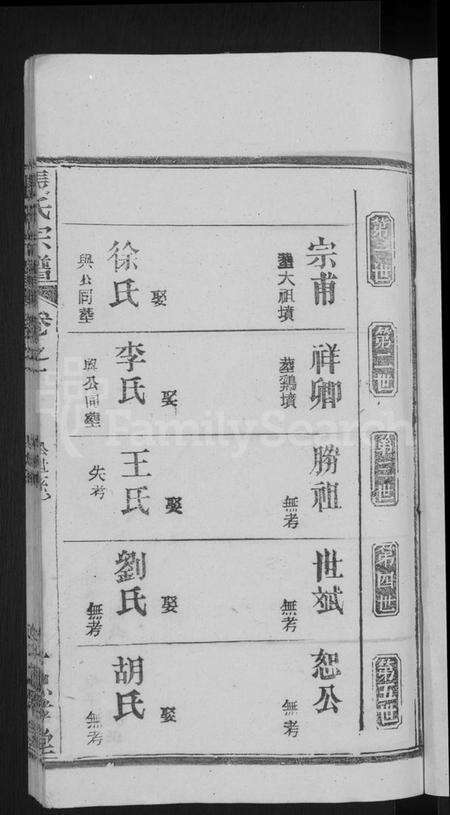 第一世
第二世
第三世
第四世
第五世
宗甫
葬大祖墳
娶
徐氏
與公同塋
祥卿
葬鷄墳
娶
李氏
與公同塋
勝祖
無考
娶
王氏
失考
世斌
無考
娶
劉氏
無考
恕公
無考
娶
胡氏
無考
張氏宗譜
卷之一
FamilySearch